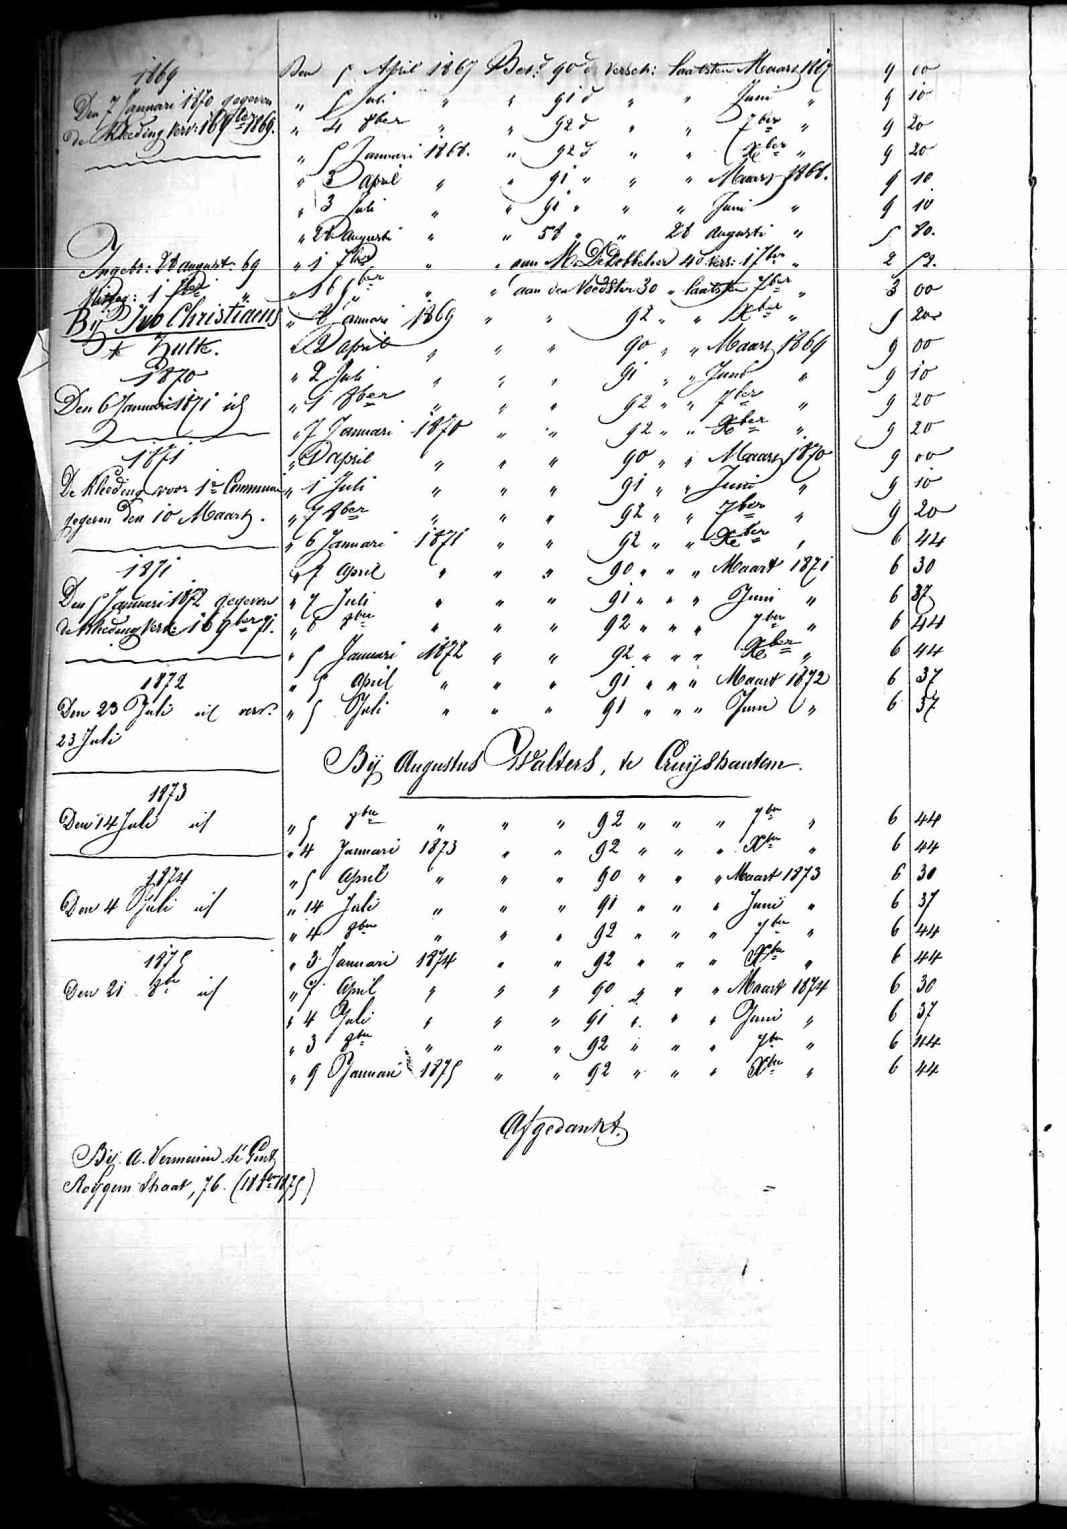 1869
Den 7 Januari 1870 gegeven
de kleeding versn 16 9ber 1869.
Ingebr: 28 august: 69
Uitbg: 1 7ber "
Bij Ivo Christiaens
Zulte.
1870
Den 6 Januari 1871 id
1871
De kleeding voor 1e Commun
gegeven den 10 Maart.
1871
Den 5 Januari 1872 gegeven
de kleeding versn 16 9ber 71.
1872
Den 23 Juli id vers.
23 Juli
1873
Den 14 Juli id
1874
Den 4 Juli id
1875
Den 21 8ber id
Bij A. Vermeiren te Gent
Rooigem Straat, 76. (18 8ber 1875)
Den 5 April 1867 Bes: 90 d versch: laatsten Maart 1867 9 00
" 5 Juli " " 91 d " " Juni " 9 10
" 4 8ber " " 92 d " " 7ber " 9 20
" 5 Januari 1868. " 92 d " " Xber " 9 20
" 3 April " " 91 " " " Maart 1868. 9 10
" 3 Juli " " 91 " " " Juni " 9 10
" 28 Augusti " " 58 " " 28 Augusti " 5 80.
" 1 7ber " " aan M. De Dobbeleer 40 vers: 1 7ber " 2 52.
" 16 8ber " " aan den Voedster 30 " laatsten 7ber " 3 00
" 8 Januari 1869 " " 92 " " Xber " 9 20
" 2 April " " " 90 " " Maart 1869 9 00
" 2 Juli " " " 91 " " Juni " 9 10
" 1 8ber " " " 92 " " 7ber " 9 20
" 7 Januari 1870 " " 92 " " Xber " 9 20
" 8 april " " " 90 " " Maart 1870 9 00
" 1 Juli " " " 91 " " Juni " 9 10
" 7 8ber " " " 92 " " 7ber " 9 20
" 6 Januari 1871 " " 92 " " Xber " 6 44
" 7 April " " " 90 " " " Maart 1871 6 30
" 7 Juli " " " 91 " " " Juni " 6 37
" 6 8ber " " " 92 " " " 7ber " 6 44
" 5 Januari 1872 " " 92 " " " Xber " 6 44
" 5 April " " " 91 " " " Maart 1872 6 37
" 5 Juli " " " 91 " " " Juni " 6 37
Bij Augustus Walters, te Cruijshautem.
" 5 8ber " " " 92 " " " 7ber " 6 44
" 4 Januari 1873 " " 92 " " " Xber " 6 44
" 5 April " " " 90 " " " Maart 1873 6 30
" 14 Juli " " " 91 " " " Juni " 6 37
" 4 8ber " " " 92 " " " 7ber " 6 44
" 3 Januari 1874 " " 92 " " " Xber " 6 44
" 7 April " " " 90 " " " Maart 1874 6 30
" 4 Juli " " " 91 " " " Juni " 6 37
" 3 8ber " " " 92 " " " 7ber " 6 44
" 9 Januari 1875 " " 92 " " " Xber " 6 44
Afgedankt.